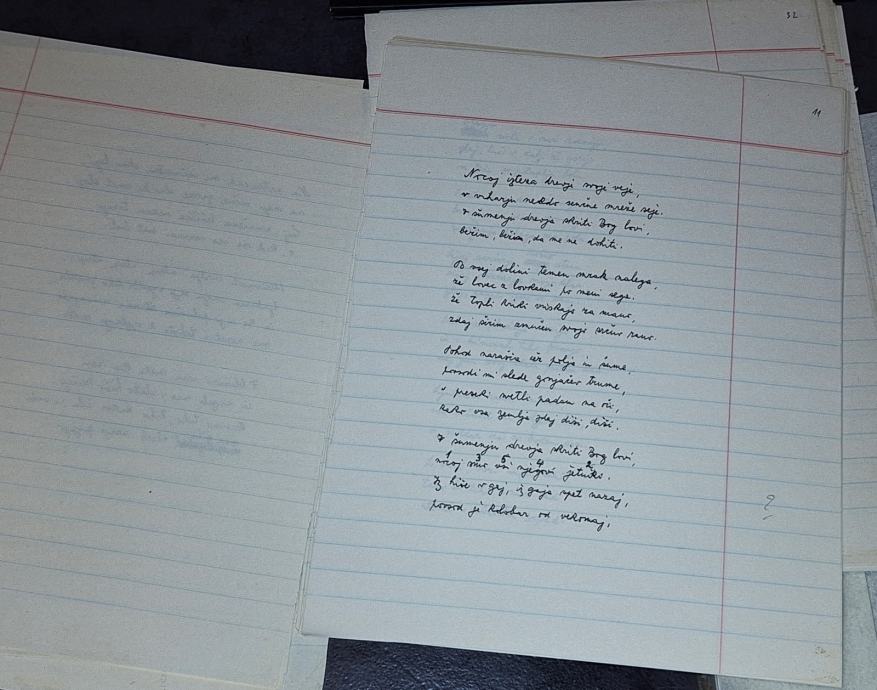 32
11
Nocoj izteza drevje svoje veje,
v vrhovju nekdo senčne mreže seje.
V šumenju drevja skriti Bog lovi,
bežim, bežim, da me ne dohiti.
Po vsej dolini temen mrak nalega,
že lovec z lovkami po meni sega.
že topli kriki vriskajo za mano,
zdaj širim zmučen svojo srčno rano.
Pohod narašča čez polja in šume,
povsodi mi slede gonjačev trume,
v preseki svetli padam na oči,
kako vsa zemlja zdaj diši, diši.
V šumenju drevja skriti Bog lovi,
1 3 5 4 2
nocoj smo vsi njegovi jetniki.
Iz hiše v gaj, iz gaja spet nazaj,
povsod je od vekomaj,
?